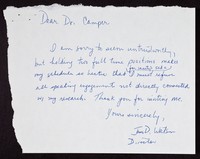 Dear Dr. Camper
I am sorry to seem untrustworthy,
but holding two full time positions makes
my schedule so hectic that I must refuse
all speaking engagements not directly connected
to my research. Thank you for inviting me.
Yours sincerely,
J. D. Watson
Director